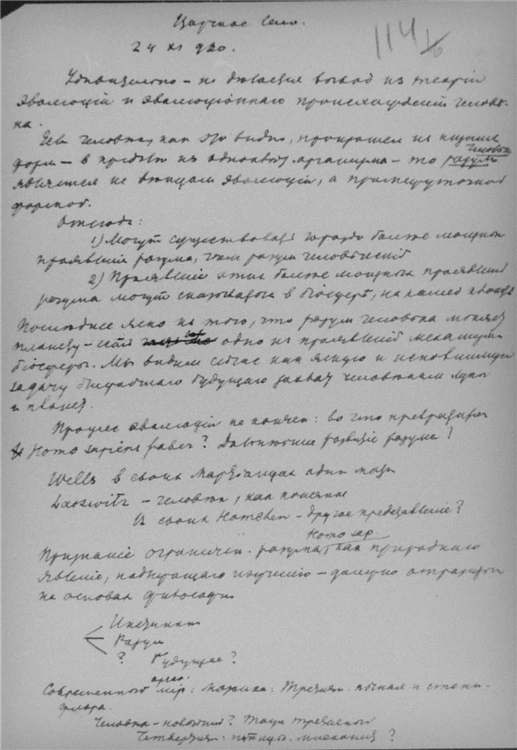 Царское Село.
24 XI 920.
114
Удивительно – не делается вывод из теории
эволюции и эволюционного происхождения челове-
ка.
Если человек, как это видно, произошел из низших
форм – в пределе из одноклет. организма – то разум человека
является не венцом эволюции, а промежуточной
формой.
Отсюда:
1) Могут существовать гораздо более мощные
проявления разума, чем разум человеческий
2) Проявления этих более мощных проявлений
разума могут сказываться в биосфере, на нашей планете
Последнее ясно из того, что разум человека меняет
планету – одно из проявлений механизма
биосферы. Мы видим сейчас как ясную и исполнимую
задачу ближайшего будущего захват человеком луны
и планет.
Процесс эволюции не кончен: во что превратится
Homo sapiens faber? Дальнейшее развитие разума?
Wells в своих Марсианах один мозг
– человек, как
В своих Homchen – другое представление?
Признание ограничен. разума Homo sap. как природного
явления, подлежащего изучению – должно отразиться
на основах философии
Инстинкт
Разум
? Будущее?
Современный орган. мир: Морская: Третичн. и степи.
флора.
Человек – новейший? Тоже третичный
Четвертичн.: птицы. ?